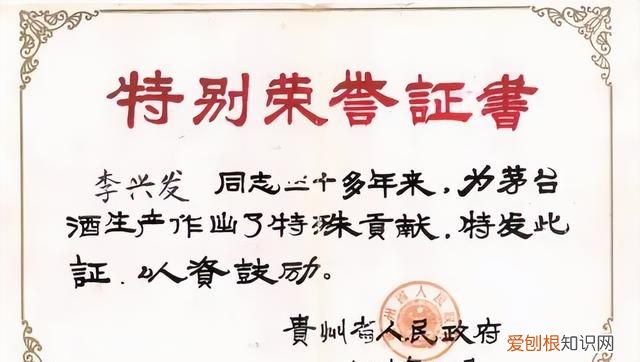 特别荣誉証書
李兴发 同志三十多年来，为茅台
酒生产作出了特殊貢献，特发此
証，以資鼓励。
貴州省人民政府
爱刨根知识网